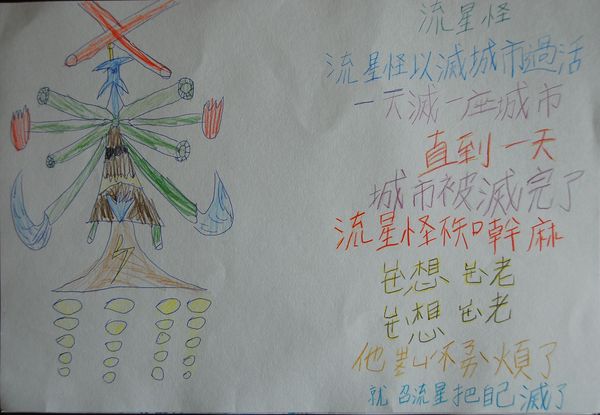 流星怪
流星怪以滅城市過活
一天滅一座城市
直到一天
城市被滅完了
流星怪 幹麻
想 老
想 老
他 煩了
就召流星把自己滅了